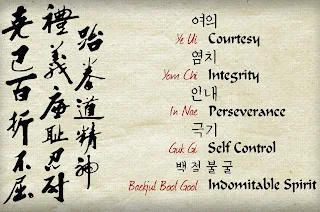 跆拳道精神
禮義廉耻忍耐
克己百折不屈
여의
Ye Ui Courtesy
염치
Yom Chi Integrity
인내
In Nae Perseverance
극기
Guk Gi Self Control
백절불굴
Baekjul Bool Gool Indomitable Spirit